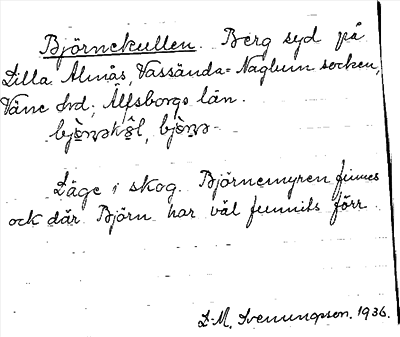 Björnekullen. Berg syd på
Lilla Almås, Vassända-Naglum socken,
Väne hrd; Älfsborgs län.
Läge i skog. Björnemyren finnes
ock där Björn har väl funnits förr.
L-M. Svenungson. 1936.